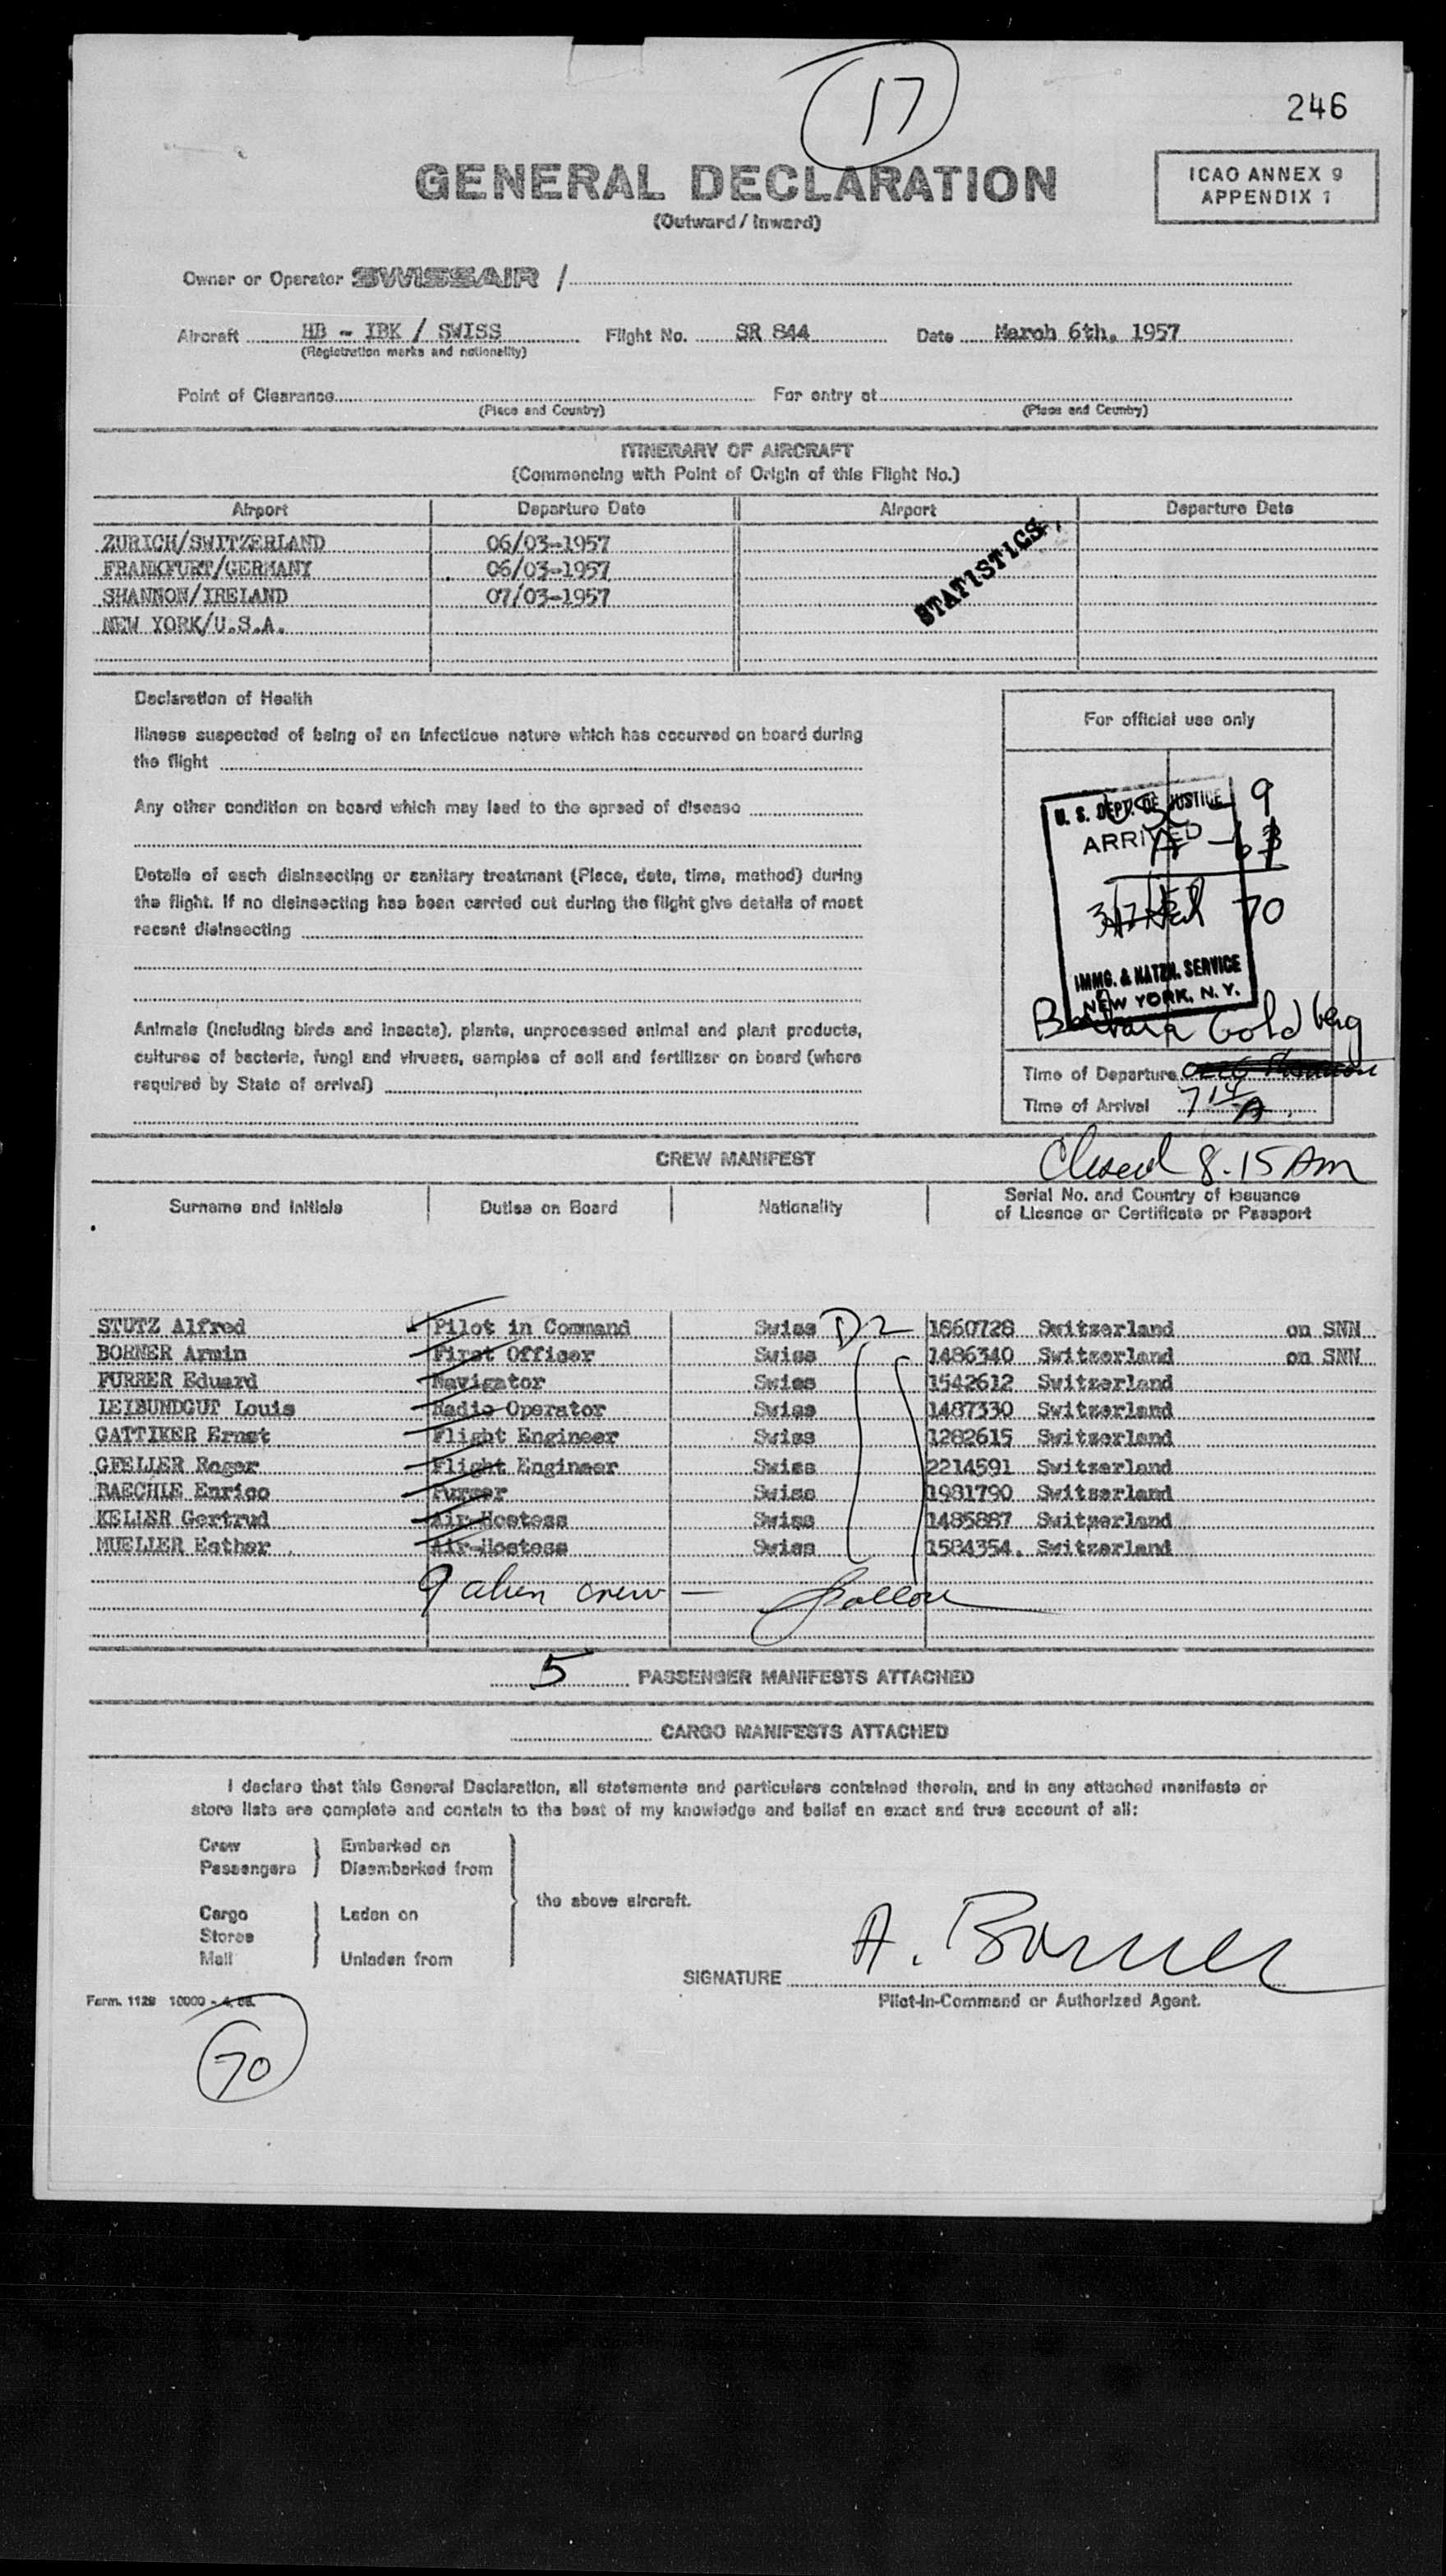 17
246
GENERAL DECLARATION
(Outward / Inward)
ICAO ANNEX 9
APPENDIX 1
Owner or Operator SWISSAIR /
Aircraft HB - IBK / SWISS Flight No. SR 844 Date March 6th. 1957
(Registration marks and nationality)
Point of Clearance For entry at
(Place and Country) (Place and Country)
ITINERARY OF AIRCRAFT
(Commencing with Point of Origin of this Flight No.)
Airport Departure Date Airport Departure Date
ZURICH/SWITZERLAND 06/03-1957
FRANKFURT/GERMANY 06/03-1957
SHANNON/IRELAND 07/03-1957
NEW YORK/U.S.A.
STATISTICS
Declaration of Health
Illness suspected of being of an infectious nature which has occurred on board during
the flight
Any other condition on board which may lead to the spread of disease
Details of each disinsecting or sanitary treatment (Place, date, time, method) during
the flight. If no disinsecting has been carried out during the flight give details of most
recent disinsecting
Animals (including birds and insects), plants, unprocessed animal and plant products,
cultures of bacteria, fungi and viruses, samples of soil and fertilizer on board (where
required by State of arrival)
For official use only
U. S. DEPT. OF JUSTICE 9
ARRIVED
70
IMMG. & NATZN. SERVICE
NEW YORK, N. Y.
Barbara Goldberg
Time of Departure
Time of Arrival 7 14 A
Closed 8.15 AM
CREW MANIFEST
Surname and Initials Duties on Board Nationality Serial No. and Country of Issuance
of Licence or Certificate or Passport
STUTZ Alfred Pilot in Command Swiss D2 1860728 Switzerland on SNN
BORNER Armin First Officer Swiss 1486340 Switzerland on SNN
FURRER Eduard Navigator Swiss 1542612 Switzerland
LEIBUNDGUT Louis Radio Operator Swiss 1487330 Switzerland
GATTIKER Ernst Flight Engineer Swiss 1282615 Switzerland
GFELLER Roger Flight Engineer Swiss 2214591 Switzerland
BAECHLE Enrico Purser Swiss 1981790 Switzerland
KELLER Gertrud Air-Hostess Swiss 1485887 Switzerland
MUELLER Esther Air-Hostess Swiss 1584354. Switzerland
9 alien crew —
5 PASSENGER MANIFESTS ATTACHED
CARGO MANIFESTS ATTACHED
I declare that this General Declaration, all statements and particulars contained therein, and in any attached manifests or
store lists are complete and contain to the best of my knowledge and belief an exact and true account of all:
Crew Embarked on
Passengers Disembarked from
the above aircraft.
Cargo Laden on
Stores
Mail Unladen from
SIGNATURE A. Borner
Pilot-in-Command or Authorized Agent.
Form. 1129 10000 - 4. 56.
70